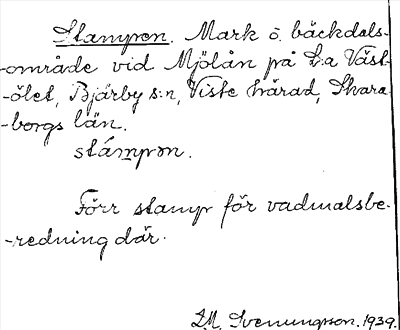 Stampen. Mark o. bäckdals-
-område vid Mjölån på L:a Väst-
-ölet, Bjärby s:n, Viste härad, Skara
-borgs län.
stámpən.
Förr stamp för vadmalsbe-
-redning där.
D.M. Svenungsson. 1939.